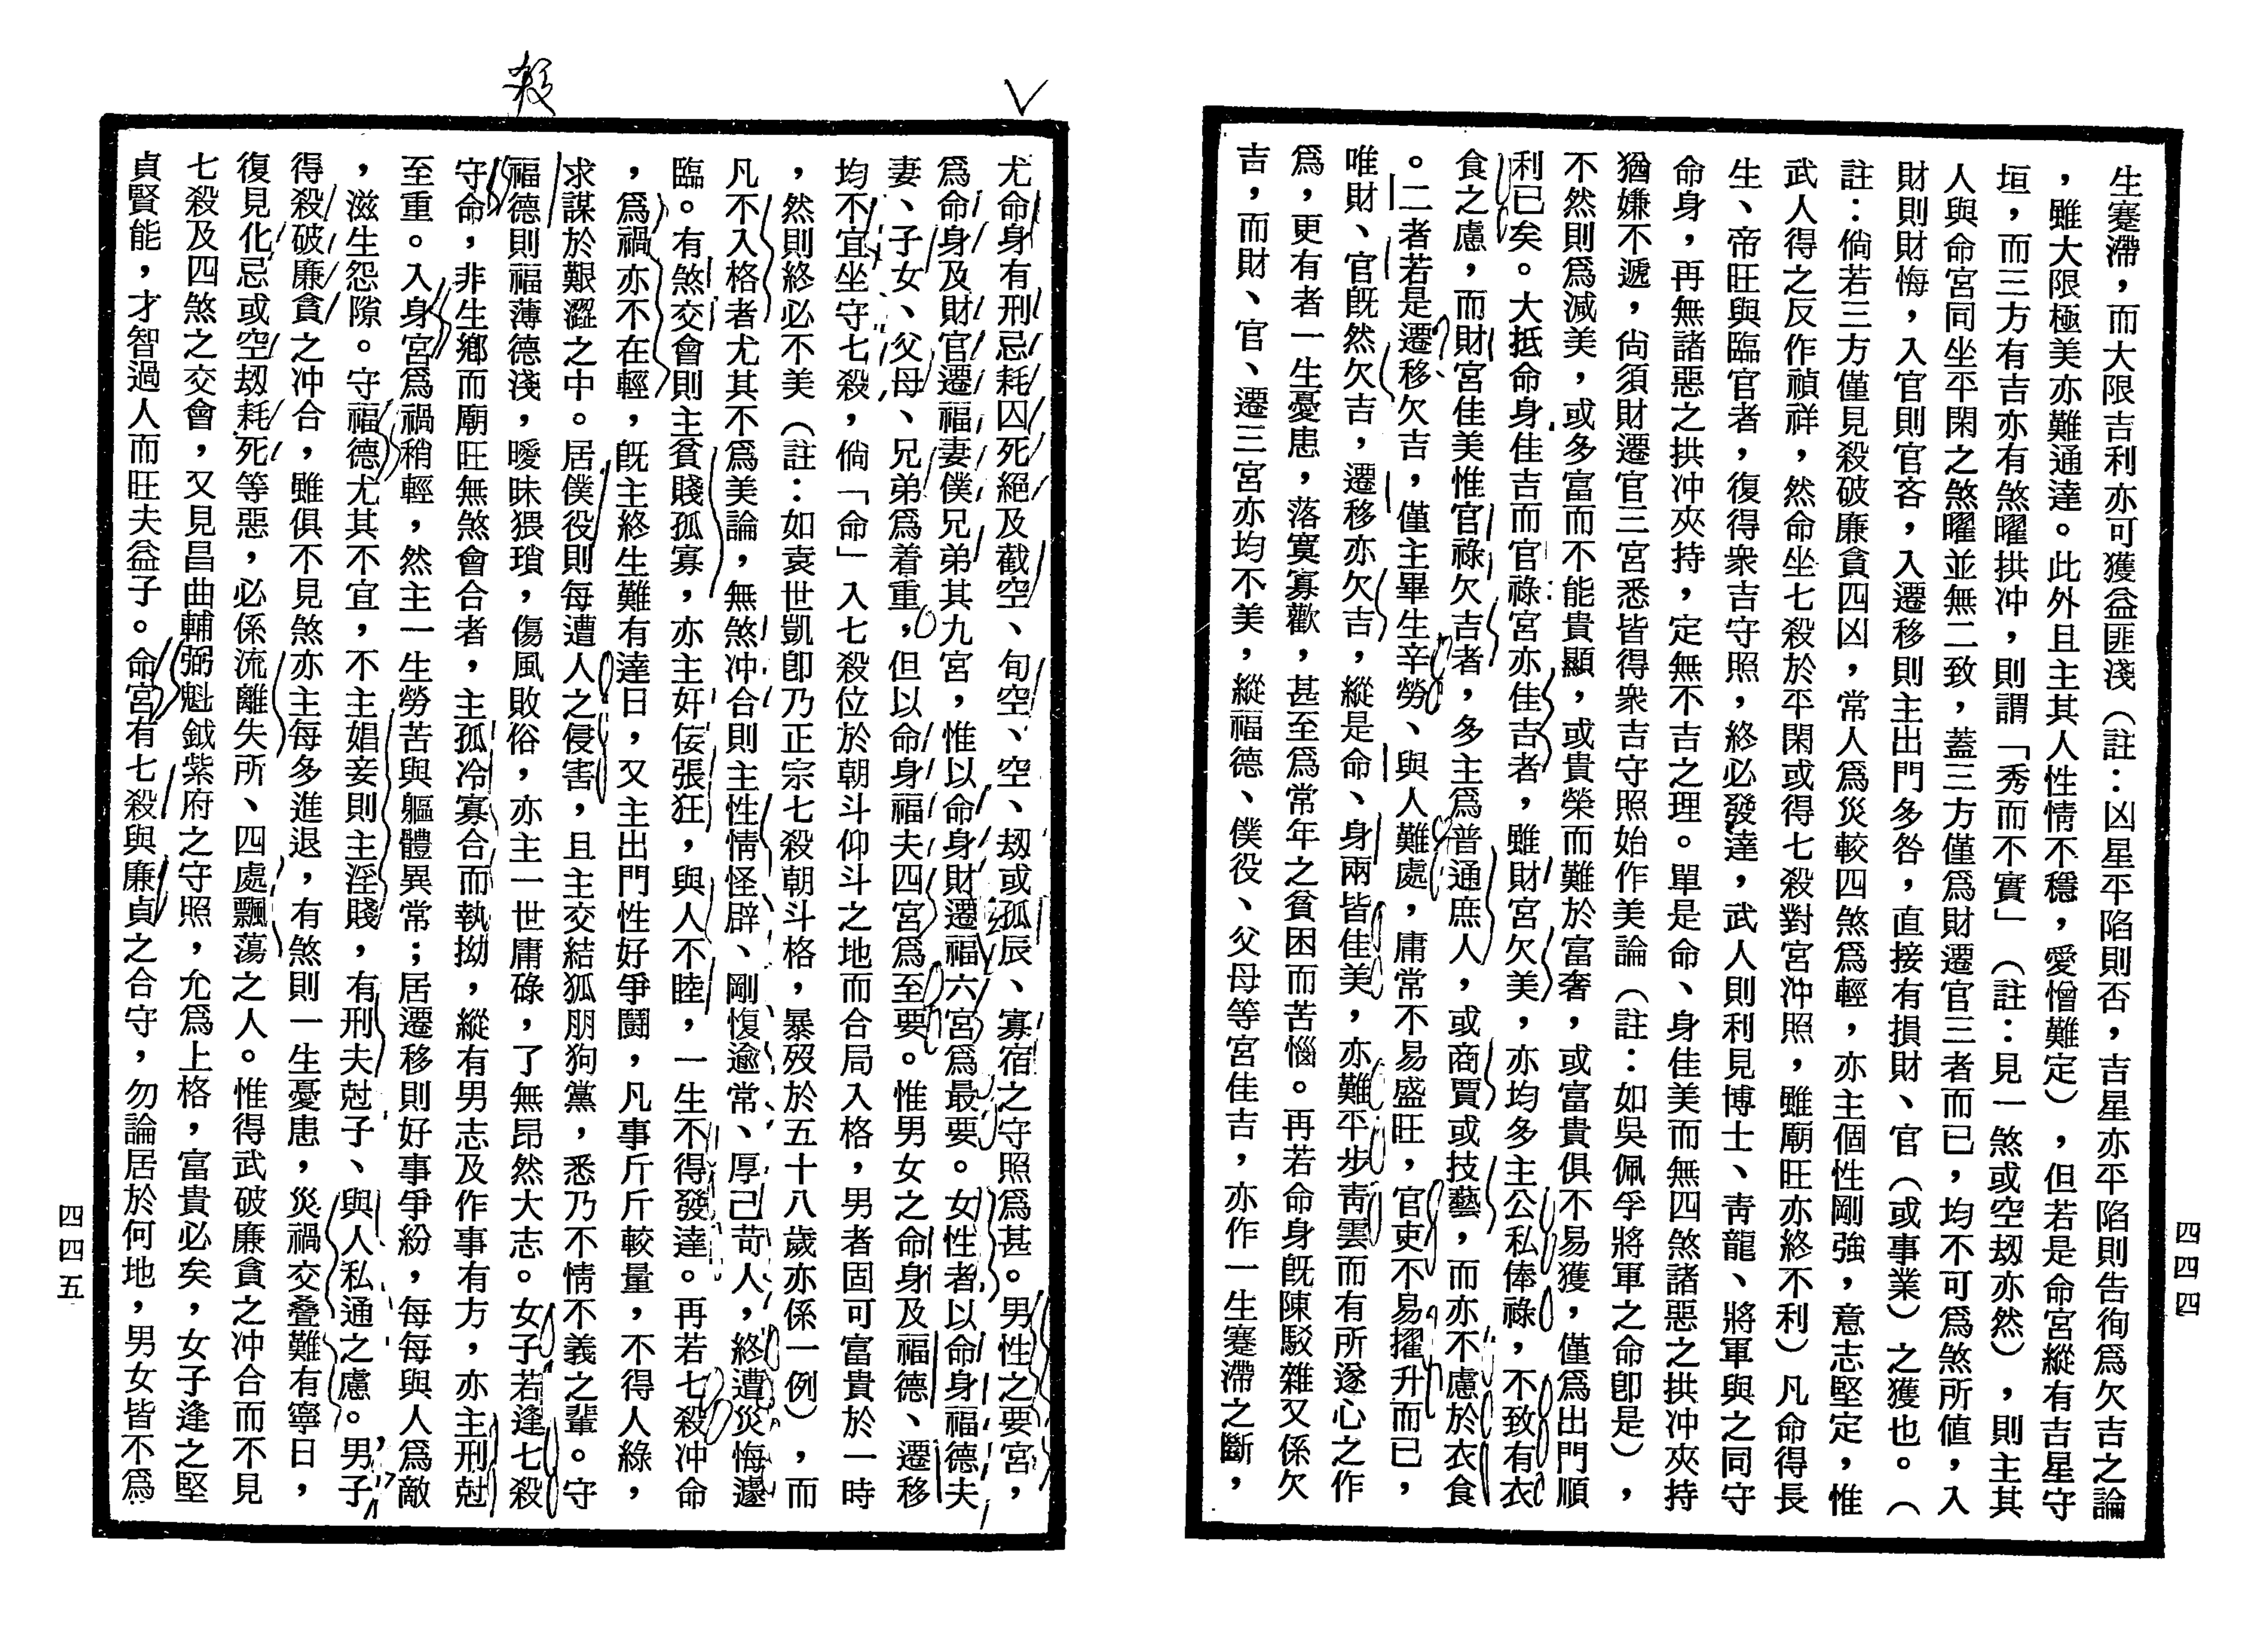 生蹇滯，而大限吉利亦可獲益匪淺（註：凶星平陷則否，吉星亦平陷則告徇爲欠吉之論
，雖大限極美亦難通達。此外且主其人性情不穩，愛憎難定），但若是命宮縱有吉星守
垣，而三方有吉亦有煞曜拱冲，則謂「秀而不實」（註：見一煞或空刼亦然），則主其
人與命宮同坐平閑之煞曜並無二致，蓋三方僅爲財遷官三者而已，均不可爲煞所值，入
財則財悔，入官則官吝，入遷移則主出門多咎，直接有損財、官（或事業）之獲也。（
註：倘若三方僅見殺破廉貪四凶，常人爲災較四煞爲輕，亦主個性剛強，意志堅定，惟
武人得之反作禎祥，然命坐七殺於平閑或得七殺對宮沖照，雖廟旺亦終不利）凡命得長
生、帝旺與臨官者，復得衆吉守照，終必發達，武人則利見博士、靑龍、將軍與之同守
命身，再無諸惡之拱冲夾持，定無不吉之理。單是命、身佳美而無四煞諸惡之拱冲夾持
猶嫌不遞，尙須財遷官三宮悉皆得衆吉守照始作美論（註：如吳佩孚將軍之命卽是），
不然則爲減美，或多富而不能貴顯，或貴榮而難於富奢，或富貴俱不易獲，僅爲出門順
利已矣。大抵命身佳吉而官祿宮亦佳吉者，雖財宮欠美，亦均多主公私俸祿，不致有衣
食之慮，而財宮佳美惟官祿欠吉者，多主爲普通庶人，或商賈或技藝，而亦不慮於衣食
。二者若是遷移欠吉，僅主畢生辛勞、與人難處，庸常不易盛旺，官吏不易擢升而已，
唯財、官旣然欠吉，遷移亦欠吉，縱是命、身兩皆佳美，亦難平步靑雲而有所遂心之作
爲，更有者一生憂患，落寞寡歡，甚至爲常年之貧困而苦惱。再若命身旣陳駁雜又係欠
吉，而財、官、遷三宮亦均不美，縱福德、僕役、父母等宮佳吉，亦作一生蹇滯之斷，
四四四
殺
尤命身有刑忌耗囚死絕及截空、旬空、空、刼或孤辰、寡宿之守照爲甚。男性之要宮，
爲命身及財官遷福妻僕兄弟其九宮，惟以命身財遷福六宮爲最要。女性者以命身福德夫
妻、子女、父母、兄弟爲着重，但以命身福夫四宮爲至要。惟男女之命身及福德、遷移
均不宜坐守七殺，倘「命」入七殺位於朝斗仰斗之地而合局入格，男者固可富貴於一時
，然則終必不美（註：如袁世凱卽乃正宗七殺朝斗格，暴歿於五十八歲亦係一例），而
凡不入格者尤其不爲美論，無煞冲合則主性情怪辟、剛愎逾常、厚己苛人，終遭災悔遽
臨。有煞交會則主貧賤孤寡，亦主奸佞張狂，與人不睦，一生不得發達。再若七殺冲命
，爲禍亦不在輕，旣主終生難有達日，又主出門性好爭鬪，凡事斤斤較量，不得人綠，
求謀於艱澀之中。居僕役則每遭人之侵害，且主交結狐朋狗黨，悉乃不情不義之輩。守
福德則福薄德淺，曖昧猥瑣，傷風敗俗，亦主一世庸碌，了無昂然大志。女子若逢七殺
守命，非生鄉而廟旺無煞會合者，主孤冷寡合而執拗，縱有男志及作事有方，亦主刑尅
至重。入身宮爲禍稍輕，然主一生勞苦與軀體異常；居遷移則好事爭紛，每每與人爲敵
，滋生怨隙。守福德尤其不宜，不主娼妾則主淫賤，有刑夫尅子、與人私通之慮。男子
得殺破廉貪之冲合，雖俱不見煞亦主每多進退，有煞則一生憂患，災禍交叠難有寧日，
復見化忌或空刼耗死等惡，必係流離失所、四處飄蕩之人。惟得武破廉貪之冲合而不見
七殺及四煞之交會，又見昌曲輔弼魁鉞紫府之守照，允爲上格，富貴必矣，女子逢之堅
貞賢能，才智過人而旺夫益子。命宮有七殺與廉貞之合守，勿論居於何地，男女皆不爲
四四五